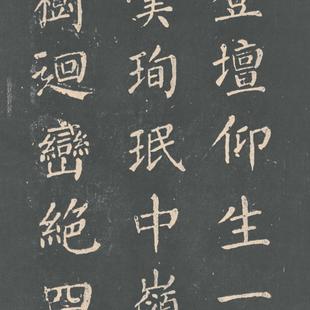 登壇仰生一
珣珉中嶺
樹廻巒絶四